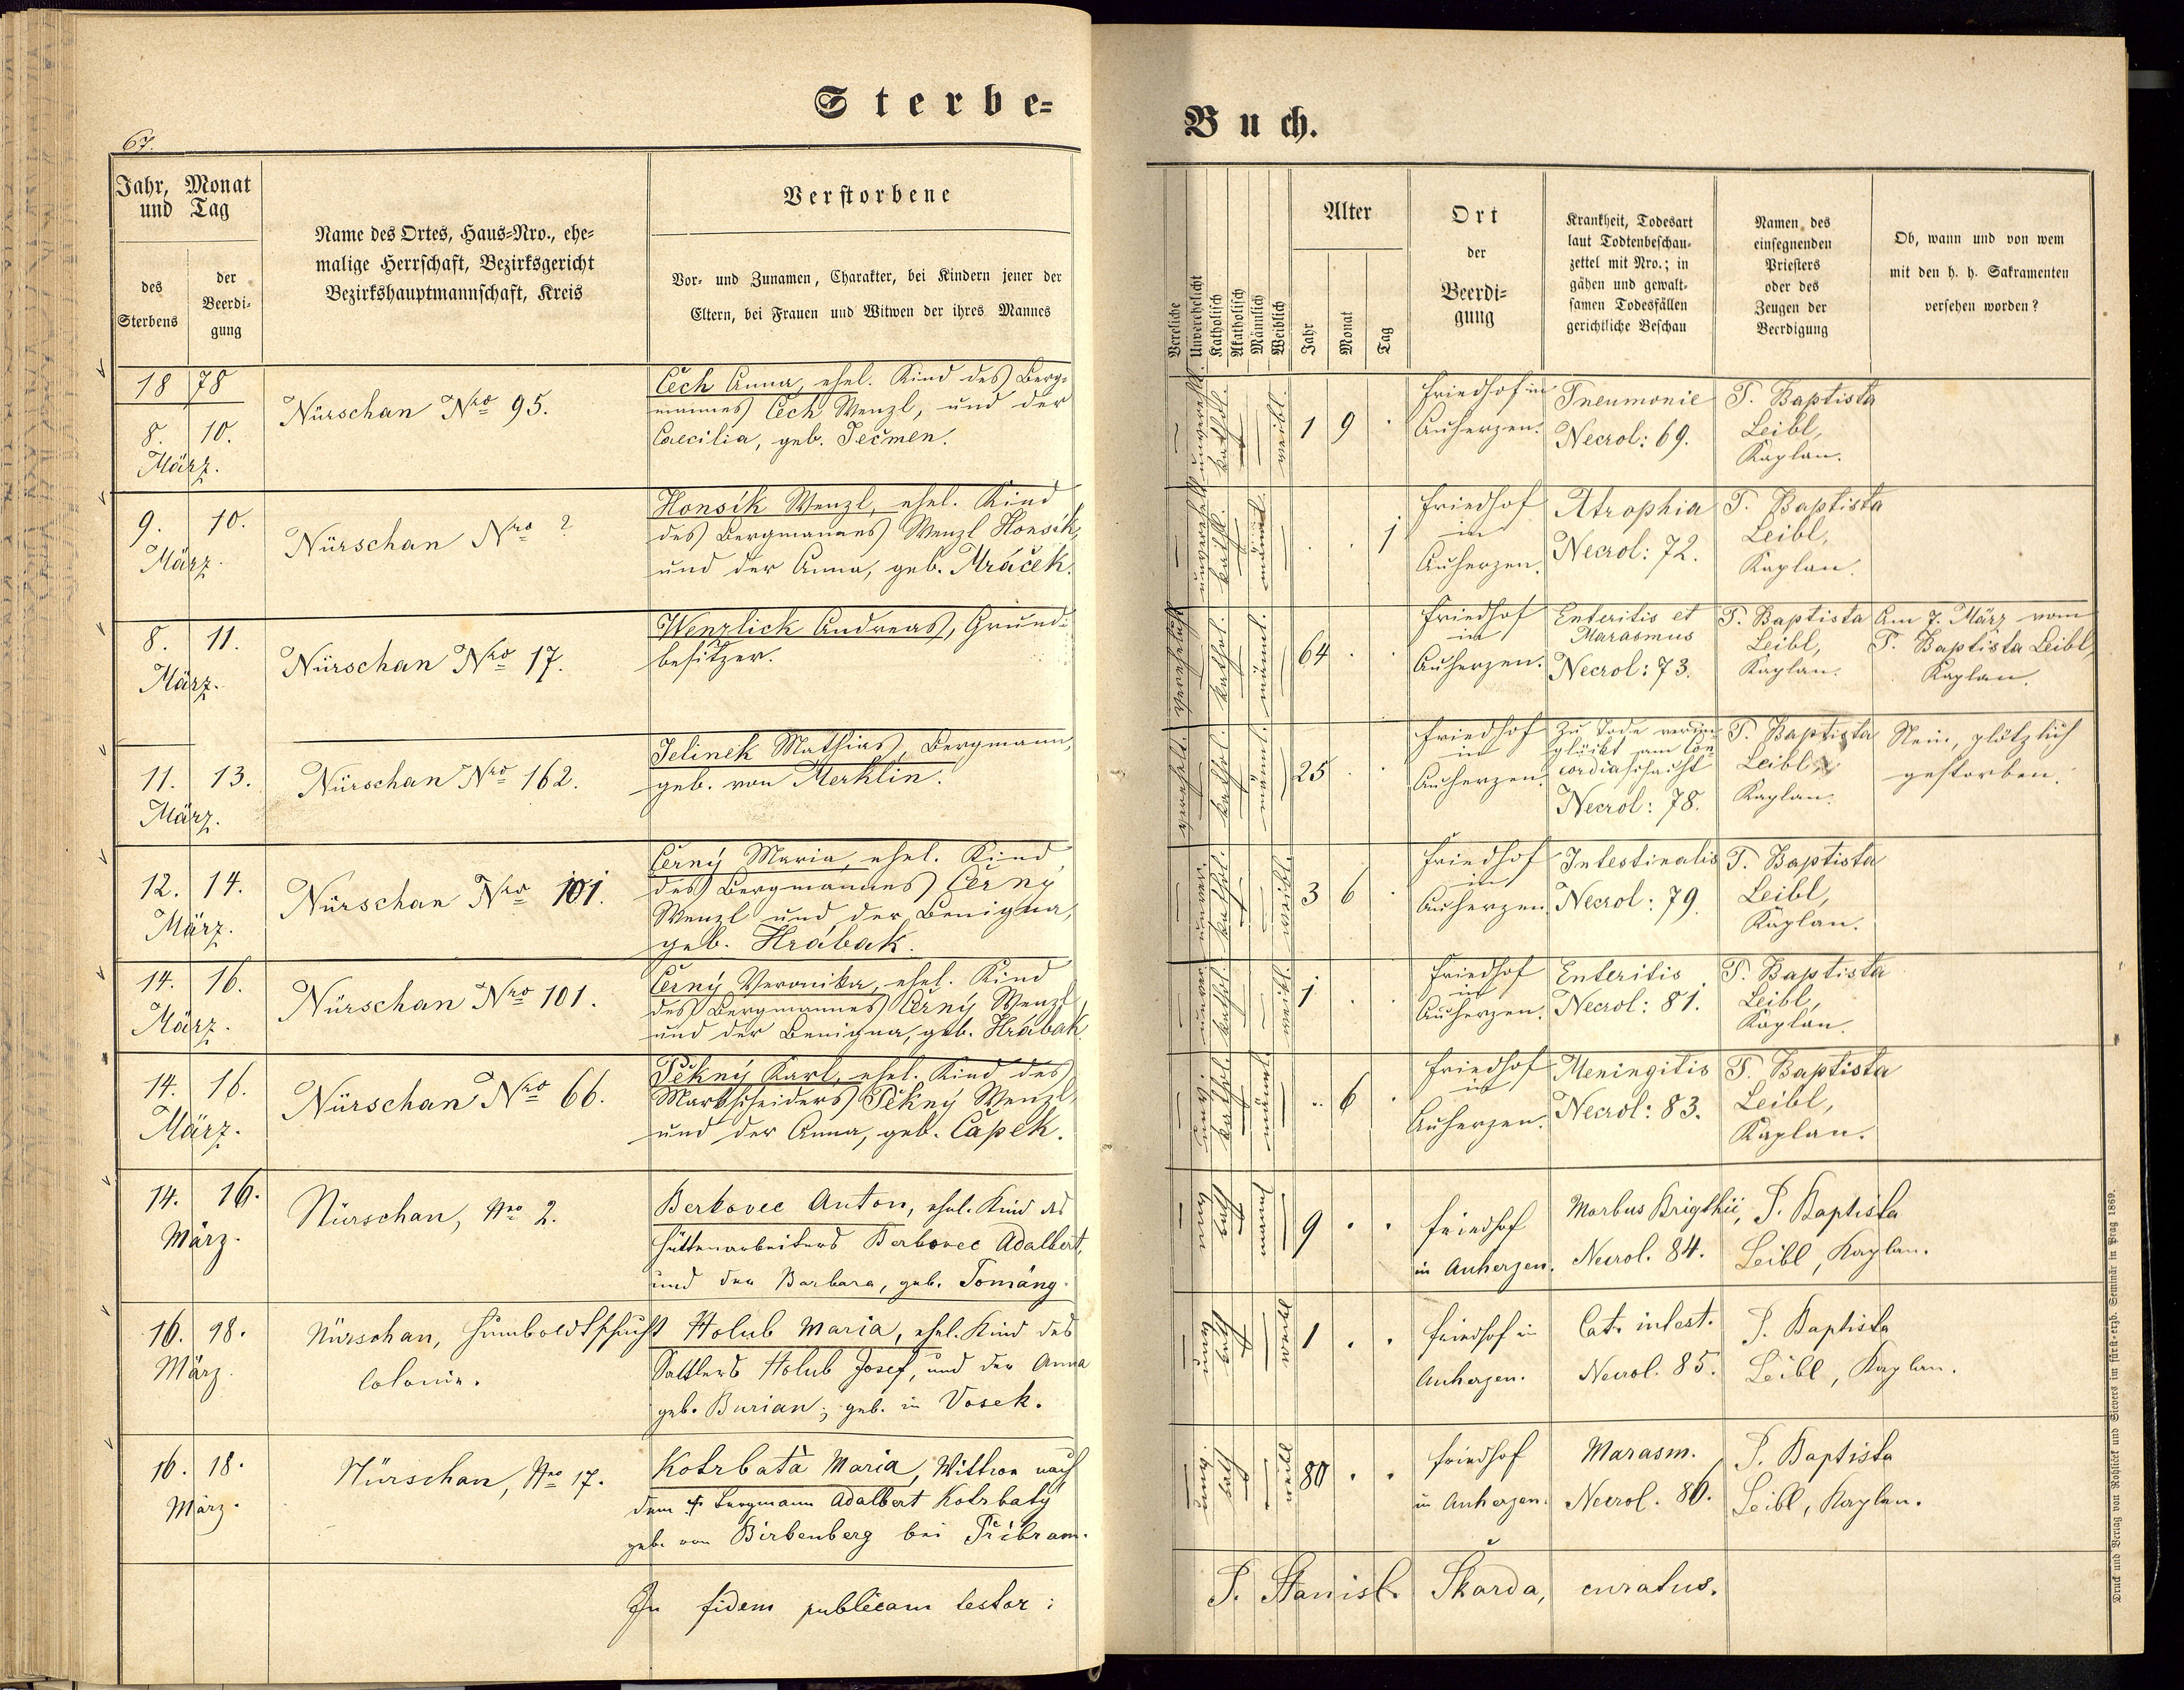 Sterbe=
Buch.
67.
Jahr, Monat
und Tag
des
Sterbens
der
Beerdi-
gung
Name des Ortes, Haus-Nro., ehe-
malige Herrschaft, Bezirksgericht
Bezirkshauptmannschaft, Kreis
Verstorbene
Vor- und Zunamen, Charakter, bei Kindern jener der
Eltern, bei Frauen und Witwen der ihres Mannes
Vereliche
Unverehelicht
Katholisch
Akatholisch
Männlich
Weiblich
Alter
Jahr
Monat
Tag
Ort
der
Beerdi-
gung
Krankheit, Todesart
laut Todtenbeschau-
zettel mit Nro.; in
gähen und gewalt-
samen Todesfällen
gerichtliche Beschau
Namen des
einsegnenden
Priesters
oder des
Zeugen der
Beerdigung
Ob, wann und von wem
mit den h. h. Sakramenten
versehen worden?
1878
8. 10.
März.
Nürschan Nro 95.
Čech Anna, ehel. Kind des Berg-
mannes Čech Wenzl, und der
Caecilia, geb. Ječmen.
unverehl. kathol. weibl.
1 9 .
Friedhof in
Auherzen.
Pneumonie
Necrol: 69.
P. Baptista
Leibl,
Kaplan.
9. 10.
März.
Nürschan Nro ?
Honsík Wenzl, ehel. Kind
des Bergmannes Wenzl Honsík,
und der Anna, geb. Mráček.
unverehl. kathl. männl.
. . 1
Friedhof
in
Auherzen.
Atrophia
Necrol: 72.
P. Baptista
Leibl,
Kaplan.
8. 11.
März.
Nürschan Nro 17.
Wenzlick Andreas, Grund-
besitzer.
verehelicht kathol. männl.
64 . .
Friedhof
in
Auherzen.
Enteritis et
Marasmus
Necrol: 73.
P. Baptista
Leibl,
Kaplan.
Am 7. März vom
P. Baptista Leibl,
Kaplan.
11. 13.
März.
Nürschan Nro 162.
Jelinek Mathias, Bergmann,
geb. von Merklin.
verehelt. kathol. männl.
25 . .
Friedhof
in
Auherzen.
Zu Tode verun-
glückt am Con-
cordiaschacht
Necrol: 78.
P. Baptista
Leibl,
Kaplan.
Nein, plötzlich
gestorben.
12. 14.
März.
Nürschan Nro 101.
Černý Maria, ehel. Kind
des Bergmannes Černý
Wenzl und der Benigna,
geb. Hrábak.
unver. kathol. weibl.
3 6 .
Friedhof
in
Auherzen.
Intestinalis
Necrol: 79.
P. Baptista
Leibl,
Kaplan.
14. 16.
März.
Nürschan Nro 101.
Černý Veronika, ehel. Kind
des Bergmannes Černý Wenzl,
und der Benigna, geb. Hrábak.
unver. kathol. weibl.
1 . .
Friedhof
in
Auherzen.
Enteritis
Necrol: 81.
P. Baptista
Leibl,
Kaplan.
14. 16.
März.
Nürschan Nro 66.
Pěkný Karl, ehel. Kind des
Markscheiders Pěkný Wenzl,
und der Anna, geb. Čapek.
kathol. männl.
.. 6 .
Friedhof
in
Auherzen.
Meningitis
Necrol: 83.
P. Baptista
Leibl,
Kaplan.
14. 16.
März.
Nürschan, Nro 2.
Berkovec Anton, ehel. Kind des
Hüttenarbeiters Berkovec Adalbert,
und der Barbara, geb. Tománg.
9 . .
Friedhof
in Auherzen.
Morbus Brigthii,
Necrol. 84.
P. Baptista
Leibl, Kaplan.
16. 98.
März.
Nürschan, Humboldtschacht
Colonie.
Holub Maria, ehel. Kind des
Sattlers Holub Josef, und der Anna
geb. Burian; geb. in Vosek.
weibl
1 . .
Friedhof in
Auherzen.
Cat. intest.
Necrol. 85.
P. Baptista
Leibl, Kaplan.
16. 18.
März.
Nürschan, Nro 17.
Kotrbatá Maria, Wittwe nach
dem † Bergmann Adalbert Kotrbatý
geb. von Birkenberg bei Přibram.
kath weibl
80 . .
Friedhof
in Auherzen.
Marasm.
Necrol. 86.
P. Baptista
Leibl, Kaplan.
In fidem publicam testor:
P. Stanisl. Škarda, curatus.
Druck und Verlag von Rohliček und Sievers im fürst-erzb. Seminär in Prag 1869.